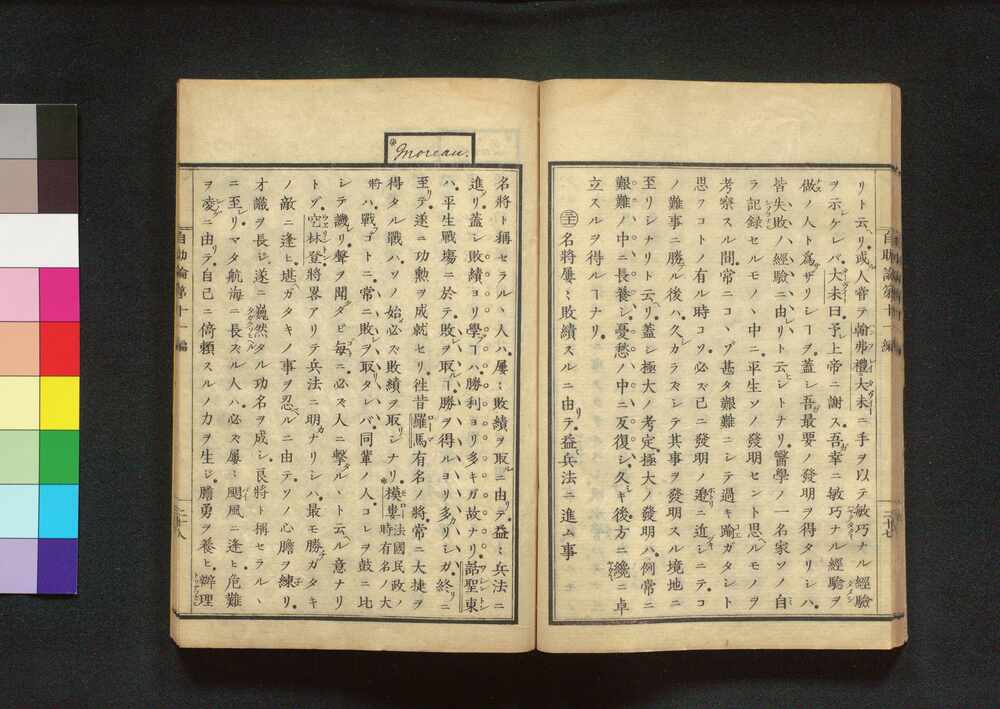 リト云リ或人嘗テ翰弗禮大未ニ手ヲ以テ敏巧ナル經驗
ヲ示ケレバ大未曰予上帝ニ謝ス吾幸ニ敏巧ナル經驗ヲ
做ノ人ト為ザリシヿヲ蓋シ吾最要ノ發明ヲ得タリシハ
皆失敗ノ經驗ニ由リト云シトナリ醫學ノ一名家ソノ自
ラ記録セルモノヽ中ニ平生ソノ發明セント思フモノヲ
考察スル間常ニコヽゾ甚タ艱難ニシテ過キ踰ガタシト
思フコトノ有ル時コソ必ス已ニ發明ノ邊ニ近シニテコ
ノ難事ニ勝ル後ハ久カラズシテ其事ヲ發明スル境地ニ
至リシナリト云リ蓋シ極大ノ考定極大ノ發明ハ例常ニ
艱難ノ中ニ長養シ憂愁ノ中ニ反復シ久キ後方ニ纔ニ卓
立スルヲ得ルヿナリ
名將屢〻敗績スルニ由テ益兵法ニ進ム事
自助論第十一編
Moreau.
名將ト稱セラルヽ人ハ屢〻敗績ヲ取ニ由テ益〻兵法ニ
進リ蓋シ敗績ヨリ學フハ勝利ヨリ多キガ故ナリ話聖東
ハ平生戰場ニ於テ敗ヲ取ルヿ勝ヲ得ルヨリ多カリシガ終ニ
至テ遂ニ功勲ヲ成就セリ徃昔羅馬有名ノ將常ニ大捷ヲ
得タル戰ハソノ始必ス敗績ヲ取シナリ摸婁法國民政ノ時有名ノ大將
ハ戰フゴトニ常ニ敗ヲ取タレバ同輩ノ人コレヲ鼓ニ比
シテ譏リ聲ヲ聞タビ毎ニ必ス人ニ撃ルヽト云ル意ナリ
トゾ空林登將畧アリテ兵法ニ明カナリシハ最モ勝ガタキ
ノ敵ニ逢ヒ堪ガタキノ事ヲ忍ルニ由テソノ心膽ヲ練リ
才識ヲ長ジ遂ニ巍然タル功名ヲ成シ良將ト稱セラルヽ
ニ至リマタ航海ニ長ズル人ハ必ス屢〻颶風ニ逢ヒ危難
ヲ凌ニ由テ自己ニ倚頼スルノ力ヲ生シ膽勇ヲ養ヒ辨理
自助論第十一編